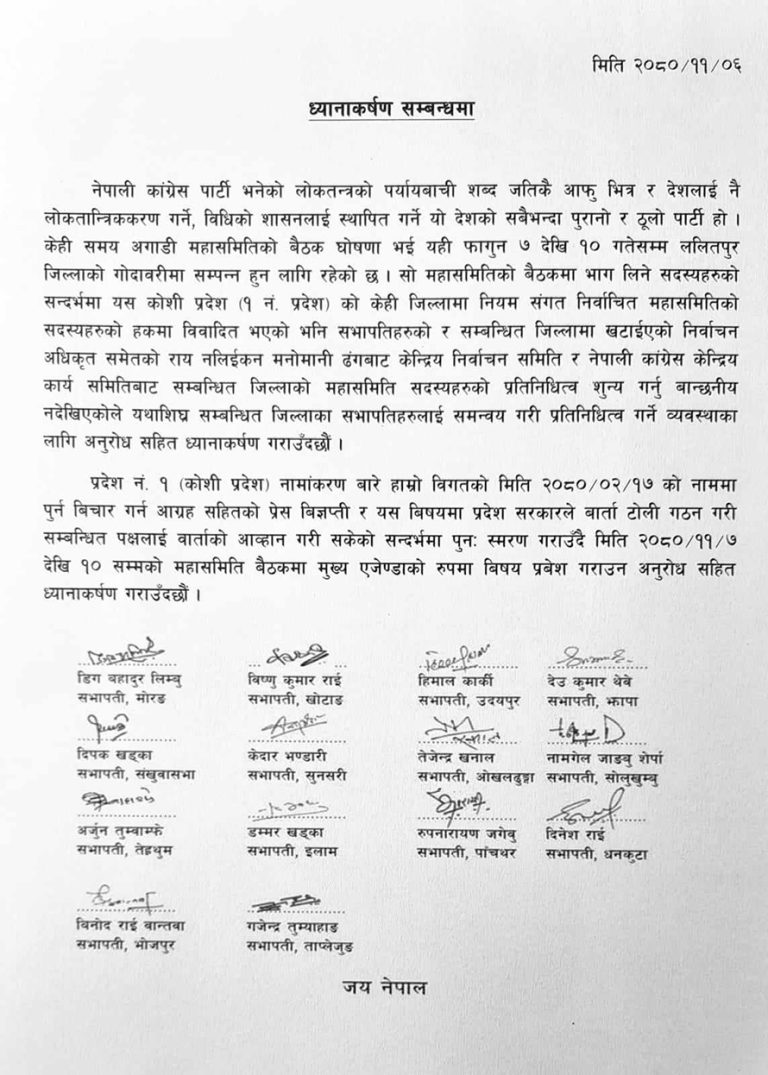 मिति २०८०/११/०६
ध्यानाकर्षण सम्बन्धमा
नेपाली कांग्रेस पार्टी भनेको लोकतन्त्रको पर्यायबाची शब्द जतिकै आफु भित्र र देशलाई नै
लोकतान्त्रिककरण गर्ने, विधिको शासनलाई स्थापित गर्ने यो देशको सबैभन्दा पुरानो र ठूलो पार्टी हो ।
केही समय अगाडी महासमितिको बैठक घोषणा भई यही फागुन ७ देखि १० गतेसम्म ललितपुर
जिल्लाको गोदावरीमा सम्पन्न हुन लागि रहेको छ । सो महासमितिको बैठकमा भाग लिने सदस्यहरुको
सन्दर्भमा यस कोशी प्रदेश (१ नं. प्रदेश) को केही जिल्लामा नियम संगत निर्वाचित महासमितिको
सदस्यहरुको हकमा विवादित भएको भनि सभापतिहरुको र सम्बन्धित जिल्लामा खटाईएको निर्वाचन
अधिकृत समेतको राय नलिईकन मनोमानी ढंगबाट केन्द्रिय निर्वाचन समिति र नेपाली कांग्रेस केन्द्रिय
कार्य समितिबाट सम्बन्धित जिल्लाको महासमिति सदस्यहरुको प्रतिनिधित्व शुन्य गर्नु बान्छनीय
नदेखिएकोले यथाशिघ्र सम्बन्धित जिल्लाका सभापतिहरुलाई समन्वय गरी प्रतिनिधित्व गर्ने व्यवस्थाका
लागि अनुरोध सहित ध्यानाकर्षण गराउँदछौं ।
प्रदेश नं. १ (कोशी प्रदेश) नामांकरण बारे हाम्रो विगतको मिति २०८०/०२/१७ को नाममा
पुर्न बिचार गर्न आग्रह सहितको प्रेस बिज्ञप्ती र यस बिषयमा प्रदेश सरकारले बार्ता टोली गठन गरी
सम्बन्धित पक्षलाई वार्ताको आव्हान गरी सकेको सन्दर्भमा पुनः स्मरण गराउँदै मिति २०८०/११/७
देखि १० सम्मको महासमिति बैठकमा मुख्य एजेण्डाको रुपमा बिषय प्रबेश गराउन अनुरोध सहित
ध्यानाकर्षण गराउँदछौं ।
डिग बहादुर लिम्बु विष्णु कुमार राई हिमाल कार्की देउ कुमार थेबे
सभापती, मोरङ सभापती, खोटाङ सभापती, उदयपुर सभापती, झापा
दिपक खड्का केदार भण्डारी तेजेन्द्र खनाल नामगेल जाङबु शेर्पा
सभापती, संखुवासभा सभापती, सुनसरी सभापती, ओखलढुङ्गा सभापती, सोलुखुम्बु
अर्जुन तुम्बाम्फे डम्मर खड्का रुपनारायण जगेबु दिनेश राई
सभापती, तेह्रथुम सभापती, इलाम सभापती, पांचथर सभापती, धनकुटा
बिनोद राई बान्तवा गजेन्द्र तुम्याहाङ
सभापती, भोजपुर सभापती, ताप्लेजुङ
जय नेपाल